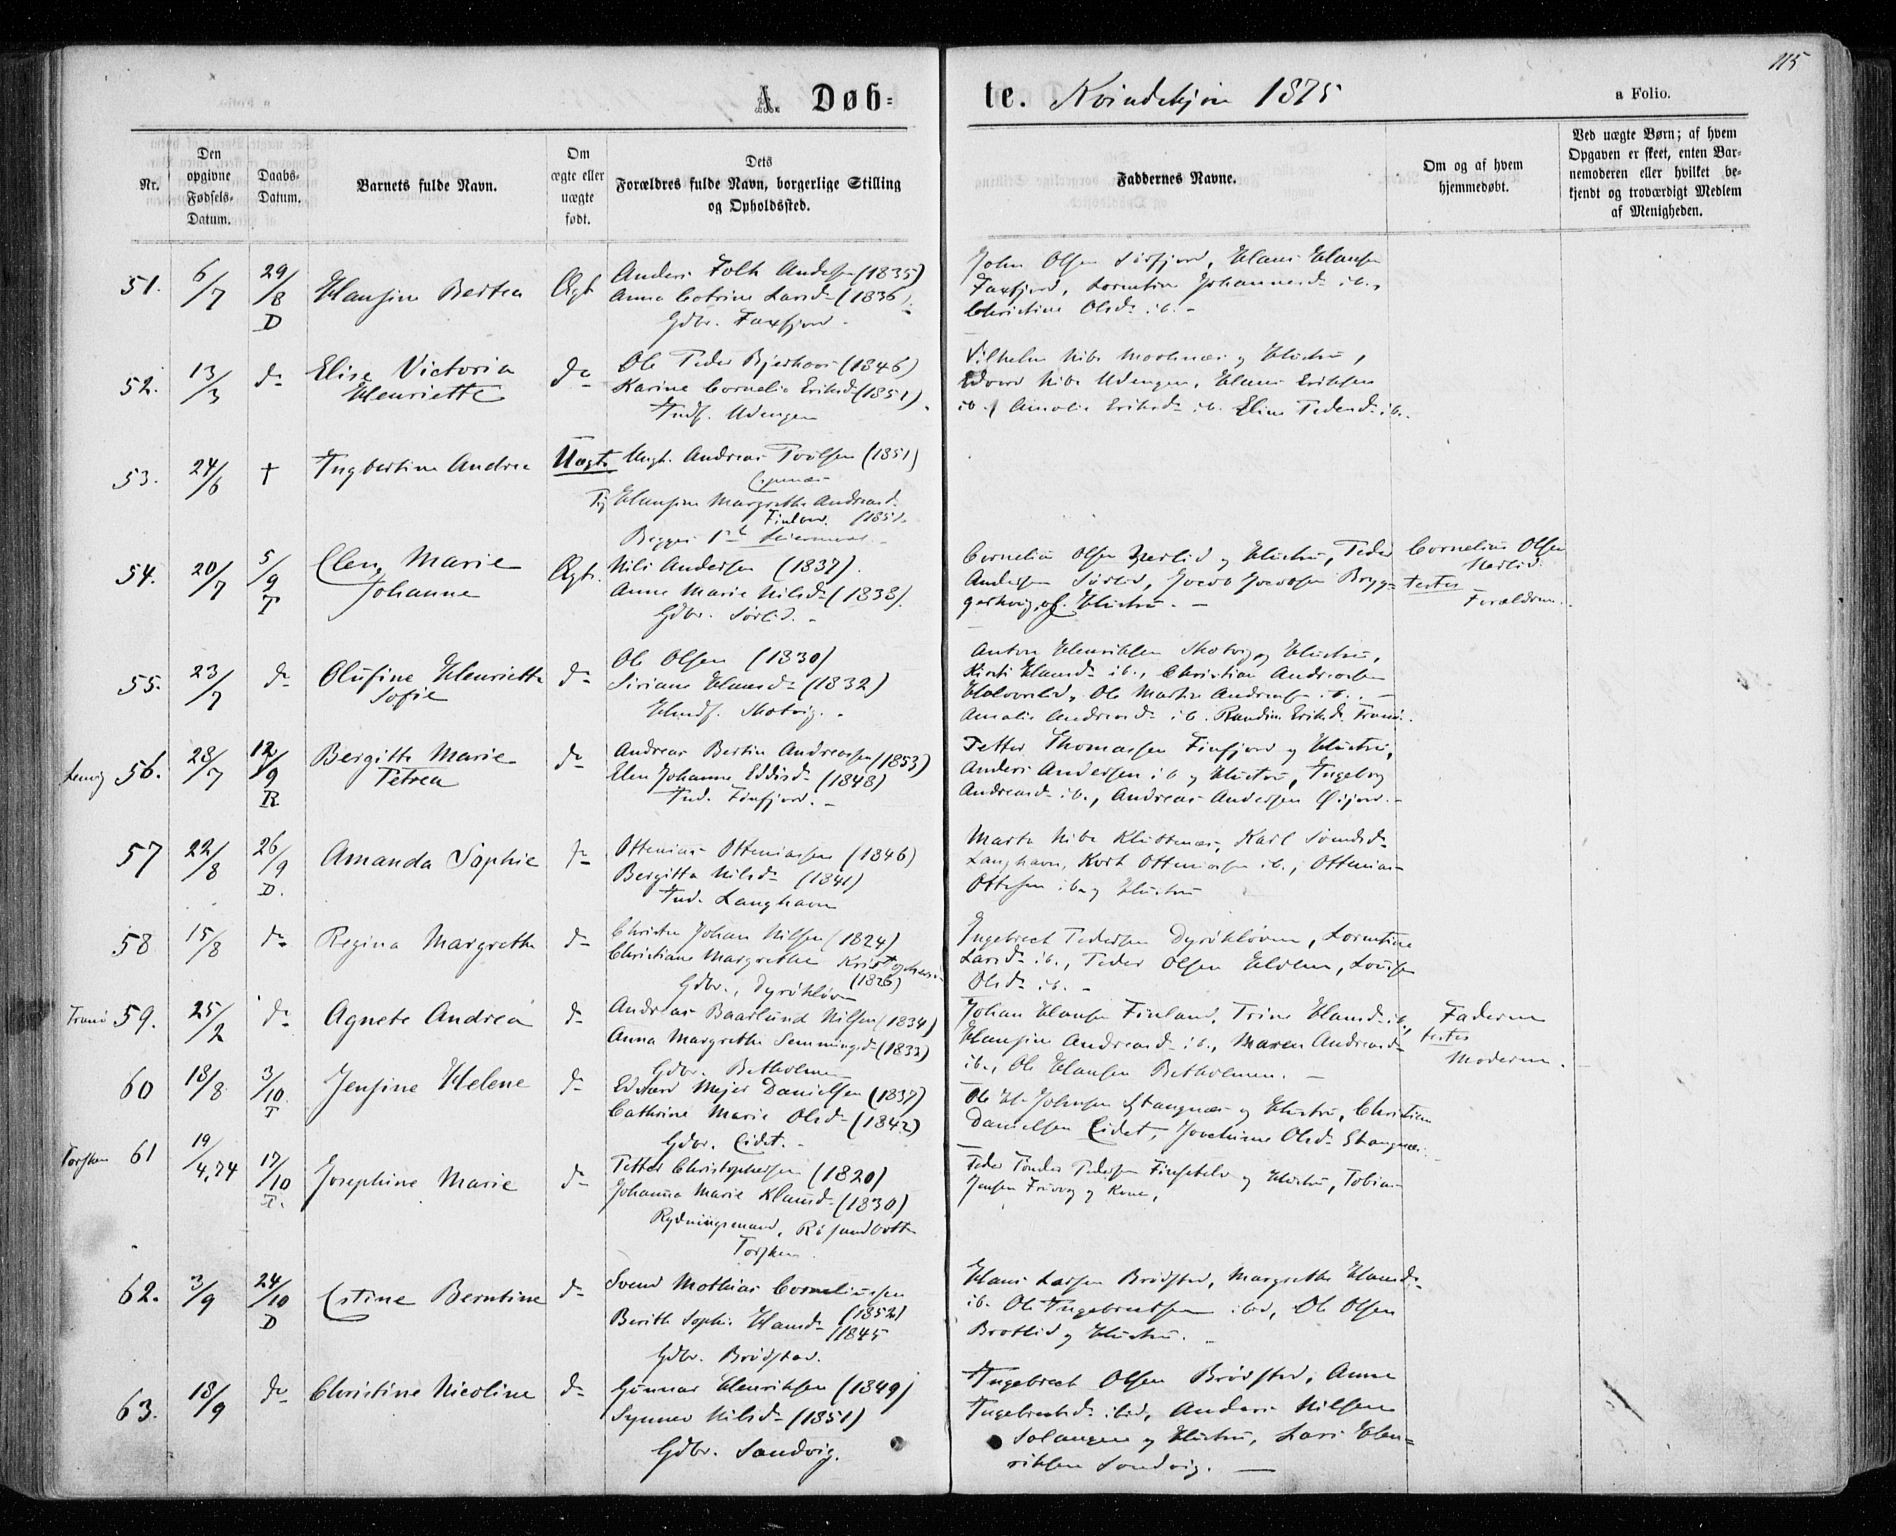 115
A. Døb-
te. Kvindekjøn 1875
a Folio.
Nr.
Den opgivne Fødsels-Datum.
Daabs-Datum.
Barnets fulde Navn.
Om ægte eller uægte født.
Dets Forældres fulde Navn, borgerlige Stilling og Opholdssted.
Faddernes Navne.
Om og af hvem hjemmedøbt.
Ved uægte Børn; af hvem Opgaven er skeet, enten Barnemoderen eller hvilket bekjendt og troværdigt Medlem af Menigheden.
51. 6/7 29/8 D Hansine Bertea Ægt.
Anders Falk Anderssen (1835)
Anna Catrine Larsd. (1836)
Gdbr. Faxfjord.
John Olsen Sørfjord, Hans Hansen
Faxfjord, Lorentine Johannesd. ib.,
Christine Olsd. ib.
52. 13/3 do Elise Victoria
Henriette do
Ole Peder Bjerkaas (1846)
Karine Cornelia Eriksd. (1851)
Inds. Udengen
Vilhelm Nibe og Hustru,
Edvard Nibe Udengen, Hans Eriksen
ib. Amalie Eriksd. ib. Eline Pedersd. ib.
53. 24/6 † Ingbertine Andrea Uægt.
Ungk. Andreas (1851)
Pig Hansine Margrethe Andreasd.
Finland. (1851)
Begges 1ste Leiermaal
54. 20/7 5/9 T Elen Marie
Johanne Ægt.
Nils Andersen (1837)
Anne Marie Nilsd. (1838)
Gdbr. Sørlid.
Cornelius Olsen og Hustru, Peder
Andersen Sørlid, Jacob Jacobsen Bryg-
Cornelius Olsen
testes
Forældrene.
55. 23/7 do Olusine Henriette
Sofie do
Ole Olsen (1830)
Siriane Hansd. (1832)
Husm. Skatvig.
Anton Henriksen Skatvig og Hustru,
Kirsti Hansd. ib., Christian Andreassen
Ole Martin Andreassen ib.
Amalie Andreasd. ib. Randine Eriksd. Tranø.
Lenvig 56. 28/7 12/9 R. Bergitte Marie
Petrea do
Andreas Bertin Andreassen (1853)
Elen Johanne Eddisd. (1848)
Ind. Finfjord.
Petter Thomassen Finfjord og Hustru,
Anders Andersen ib og Hustru, Ingeborg
Andreasd. ib., Andreas Andersen Øijord.
57 22/8 26/9 D. Amanda Sophie do
Ottenias Otteniassen (1846)
Bergitta Nilsd. (1841)
Ind. Langhavn
Karl
Langhavn, Kort Otteniassen ib., Ottenias
Ottesen ib. og Hustru
58 15/8 do Regina Margrethe do
Christen Johan Nilsen (1824)
Christiane Margrethe Kristophersd.
(1826)
Gdbr., Dyrökløven
Ingebrech Pedersen Dyrökløven, Lorentine
Larsd. ib., Peder Olsen Lovise
Olsd. ib.
Tranø 59. 25/2 do Agnete Andrea do
Andreas Baarlund Nilsen (1834)
Anna Margrethe Semmingsd. (1833)
Gdbr. Betholmen
Johan Hansen Finland, Trine Hansd. ib.,
Hansine Andreasd. ib., Maren Andreasd.
ib., Ole Hansen Betholmen.
Faderen
testes
Moderen.
60 18/8 3/10 T Jensine Helene do
Edvard Mejer Danielsen (1837)
Cathrine Marie Olsd. (1842)
Gdbr. Eidet.
Ole H. Johnsen Stangnæs og Hustru, Christian
Danielsen Eidet, Jorchime Olsd. Stangnæs.
Torsken 61 19/4,74 17/10 T. Josephine Marie do
Petter Christophersen (1820)
Johanna Marie Klausd. (1830)
Rydningsmand, Røsandbotn
Torsken
Peder Tønder Pedersen og Hustru, Tobias
Jensen og Kone,
62. 3/9 24/10 D Estine Berntine do
Svend Mathias Corneliussen
(1852)
Berith Sophie Hansd. (1845
Gdbr. Brødstad.
Hans Larsen Brødstad, Margrethe Hansd.
ib. Ole Ingebrectsen ibid, Ole Olsen
Brotlid og Hustru.
63. 18/9 do Christine Nicoline do
Gunnar Henriksen (1849)
Synnev Nilsd. (1851)
Gdbr. Sandvig.
Ingebrech Olsen Brødstad, Anne
Ingebrectsd. ibid, Anders Nilsen
Solangen og Hustru, Lars Hen-
riksen Sandvig.